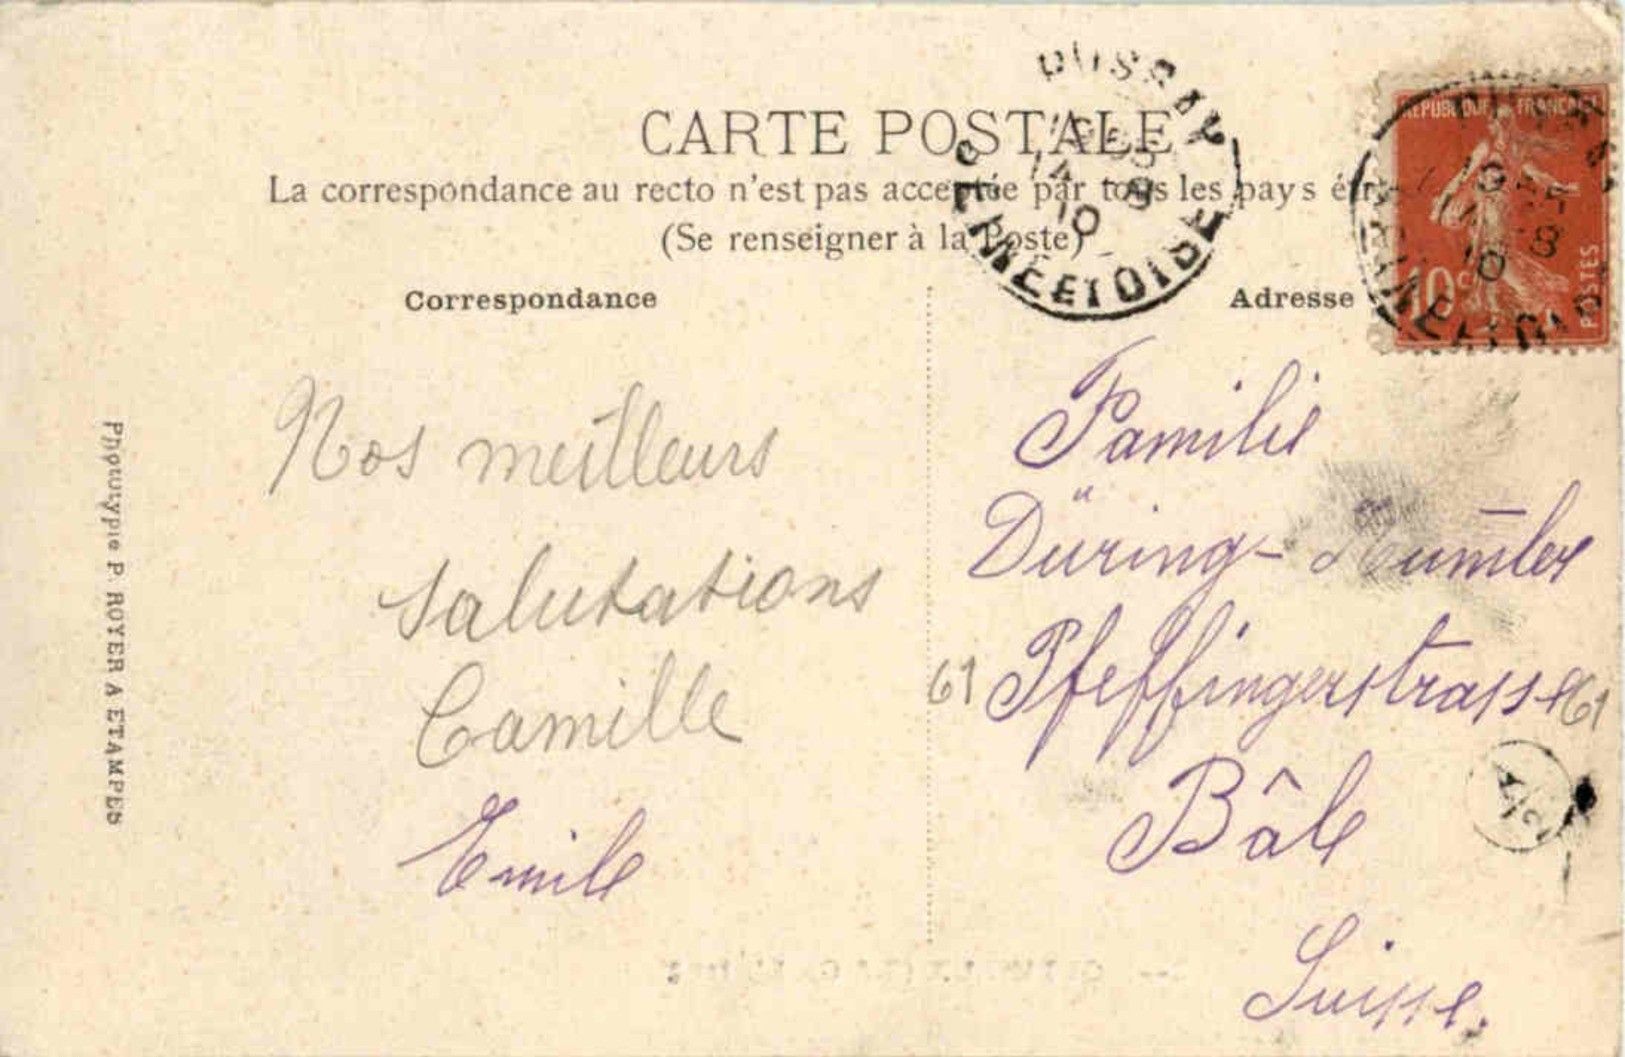 CARTE POSTALE
La correspondance au recto n'est pas acceptée par tous les pays
(Se renseigner à la Poste)
Correspondance
Adresse
REPUBLIQUE FRANÇAISE
10c
POSTES
SEINE ET OISE
10
Nos meilleurs
salutations
Camille
Emile
Familie
Düring-
61 Pfeffingerstrasse 61
Bâle
Suisse.
Phototypie P. ROYER A ETAMPES